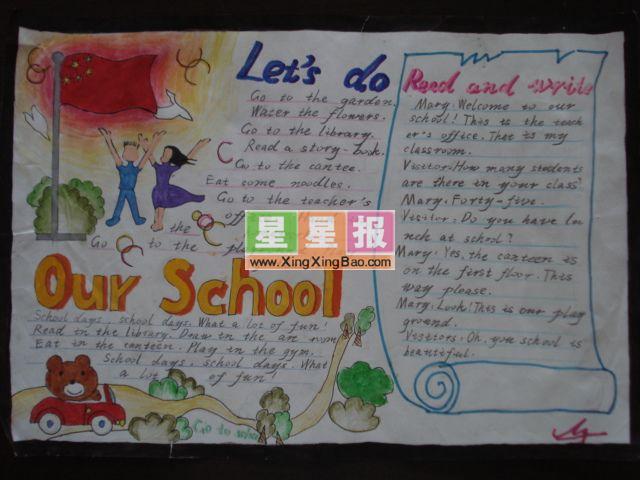 Let's do
Go to the garden.
Water the flowers.
Go to the library.
Read a story-book.
Go to the cantee.
Eat some noodles.
Go to the teacher's
off
the
Go to the pl
星星报
www.XingXingBao.com
Our School
School days, school days. What a lot of fun!
Read in the library. Draw in the are room
Eat in the canteen. Play in the gym.
School days, school days. What
a lot of fun!
Go to scho
Read and write
Mary: Welcome to our
school! This is the teach
er's office. That is my
classroom.
Visitor: How many students
are there in your class?
Mary: Forty-five.
Visitor: Do you have lu
nch at school?
Mary: Yes. the canteen is
on the first floor. This
way please.
Mary: Look! This is our play
ground.
Visitors: Oh, you school is
beautiful.